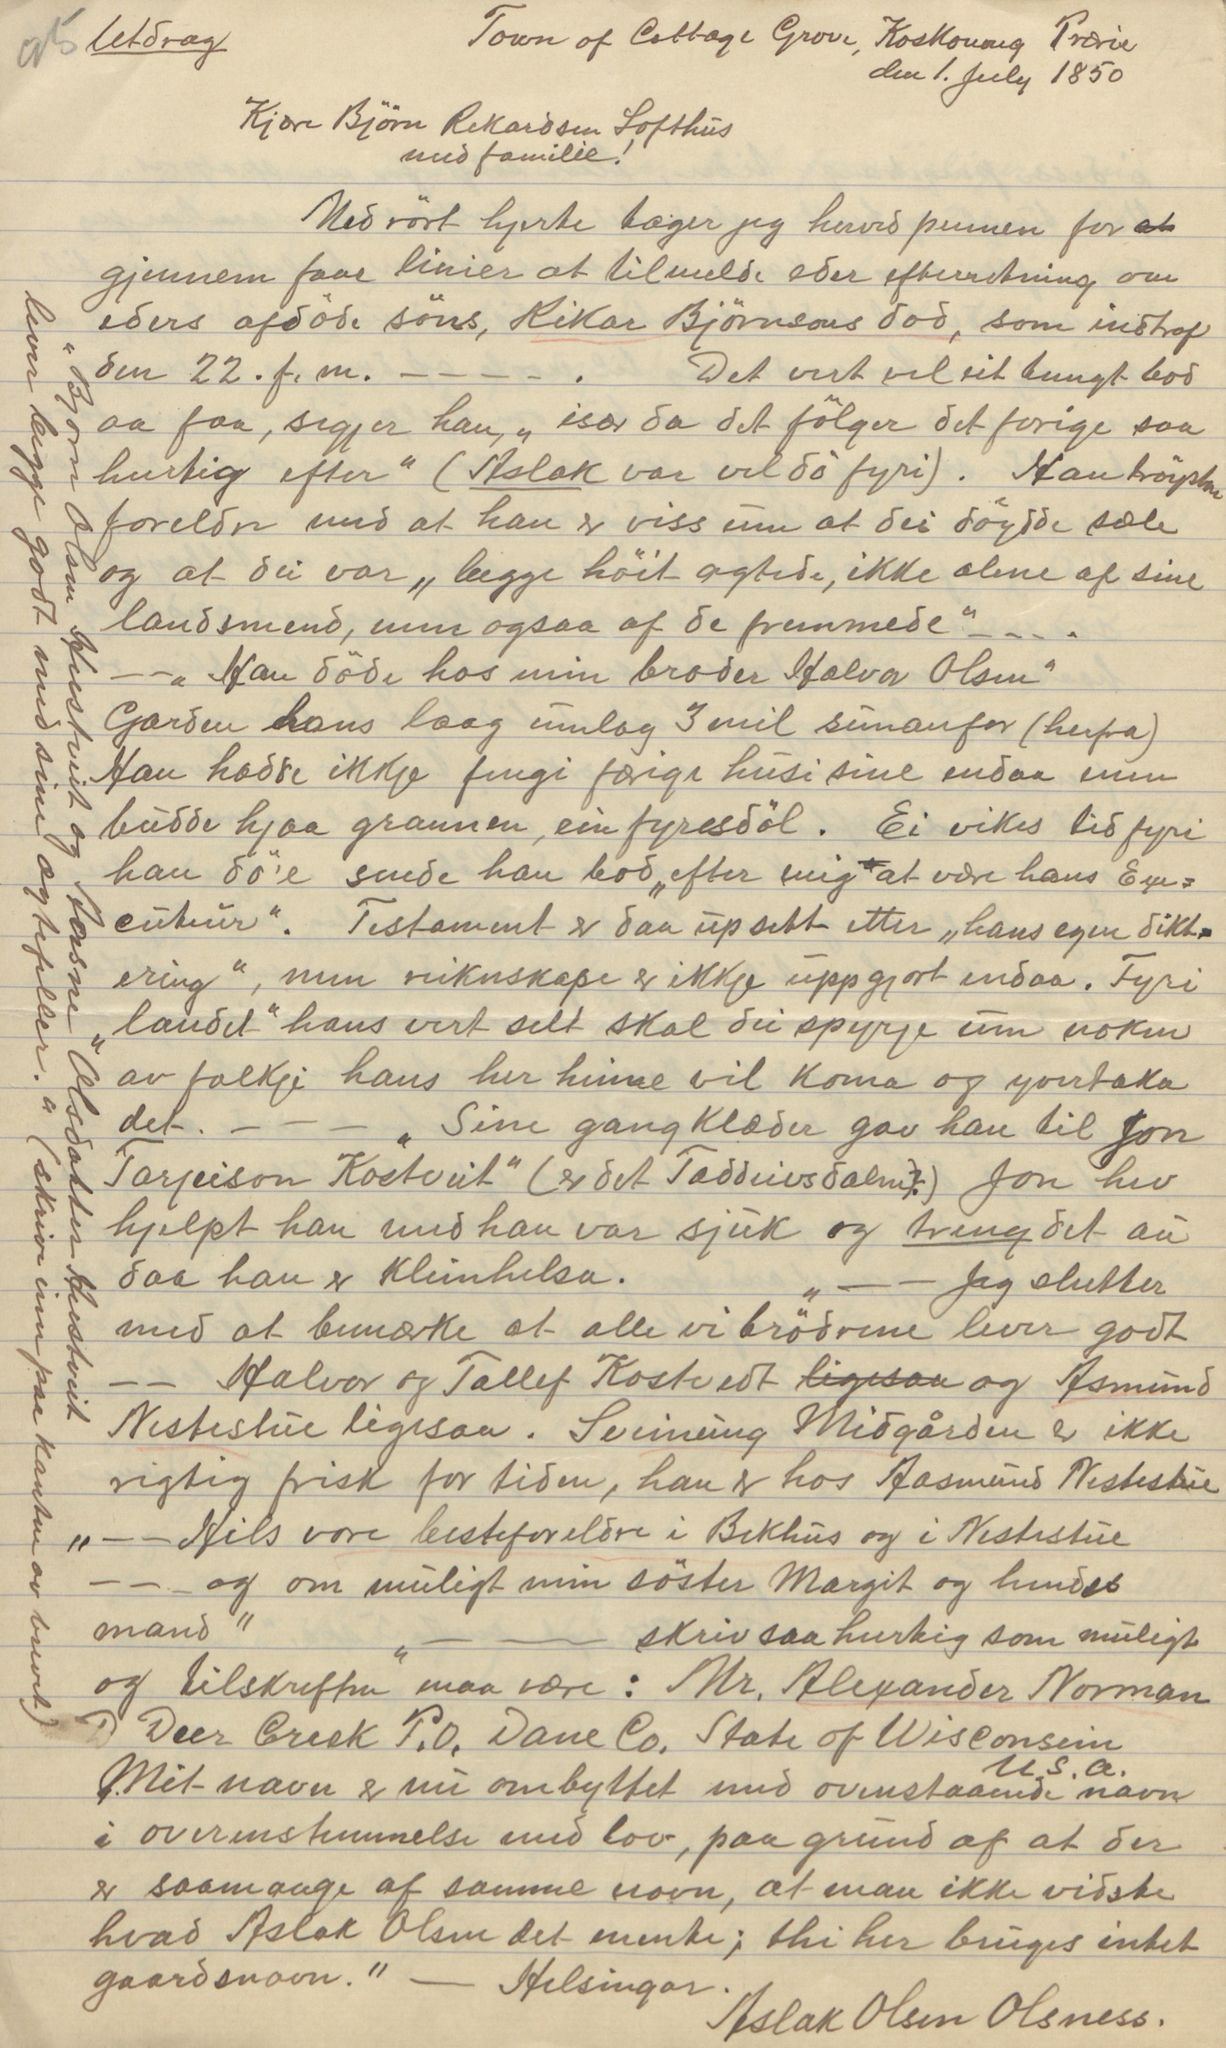 95 Utdrag
Town of Cottage Grove, Koskonong Prærie
den 1. July 1850
Kjære Björn Rekardsen Lofthus
med familie!
Med rört hjerte tager jeg herved pennen for at
gjennem faae linier at tilmelde eder efterretning om
eders afdöde söns, Rikar Björnsons död, som indtraf
den 22. f. m. – – – – – . Det vert vel eit tungt bod
aa faa, segjer han, „ især da det fölger det forige saa
hurtig efter“ (Aslak var vel dö fyri). Han tröystar
foreldre med at han er viss um at dei döydde sæle
og at dei var „begge höit agtede, ikke alene af sine
landsmend, men ogsaa af de fremmede“ – – – .
– – „ Han döde hos min broder Halvor Olsen“
Garden hans laag umlag 3 mil sunanfor (herfra)
Han hadde ikkje fengi færige husi sine endaa men
budde hjaa grannen, ein fyresdöl. Ei vikes tid fyri
han dö'e sende han bod „efter mig at være hans Exe=
cuteur“. Testament er daa upsett etter „hans egen dikt=
ering“, men reiknskape er ikkje uppgjort endaa. Fyri
„landet“ hans vert selt skal dei spyrje um noken
av folkje hans her heime vil koma og yvertaka
det. – – – – „ Sine gangklæder gav han til Jon
Tarjeison Kostveit“ (er det Taddeivsdalen?) Jon hev
hjelpt han med han var sjuk og treng det au
daa han er kleinhelsa. „ – – – Jeg slutter
med at bemærke at alle vi brödrene lever godt
– – Halvor og Tallef Kostvedt ligesaa og Asmund
Nestestue ligesaa. Sveinung Midgården er ikke
rigtig frisk for tiden, han er hos Aasmund Nestestue
„ – – Hils vore besteforeldre i Bekhus og i Nestestue
– – – og om muligt min söster Margit og hendes
mand“ „ – – – skriv saa hurtig som muligt
og tilskriften“ maa være: Mr. Alexander Norman
Deer Creek P.O. Dane Co. State of Wisconsin
U.S.A.
„Mit navn er nu ombyttet med ovenstaaende navn
i overenstemmelse med lov, paa grund af at der
er saamange af samme navn, at man ikke vidste
hvad Aslak Olsen det mente; thi her bruges intet
gaardsnavn.“ — Helsingar.
Aslak Olsen Olsness.
„Bjorn Olsen Hustveit og Aasne “Olsdatter Hustveit
lever begge godt med sine ægtefeller.“ (skrive inn paa kanten av brevet)